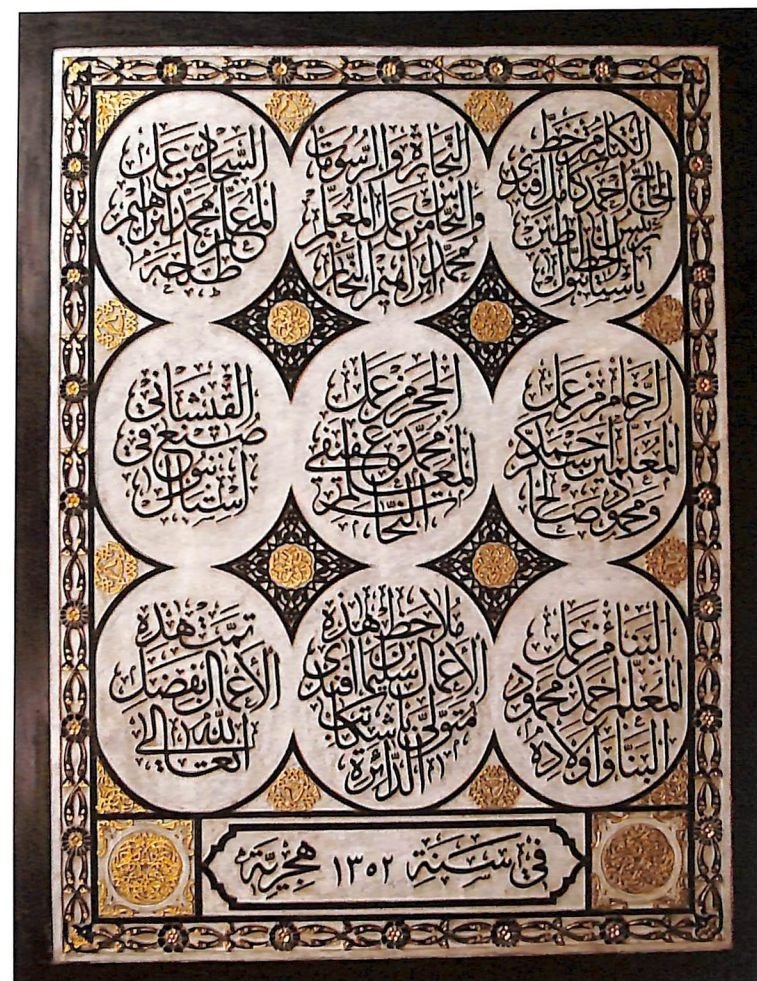 الكتابة من خط
الحاج احمد كامل افندي
رئيس الخطاطين
باستانبول
النجارة والرسومات
والنحاس من عمل المعلم
محمد ابراهيم النجار
السجاد من عمل
المعلم محمد ابراهيم
طلاحه
الرخام من عمل
المعلمين
ومحمود صالح
الحجر من عمل
محمد عفيفي
المعلم
النحات
القيشاني
صنع في
استانبول
البناء من عمل
المعلم احمد محمود
البنا واولاده
ملاحظ هذه
الأعمال سليم افندي
متولي باشكاتب
الدائرة
تمت هذه
الأعمال بفضل
الله تعالى
في سنة ١٣٥٢ هجرية